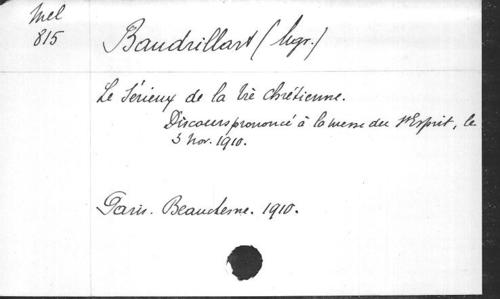 Mel
815
Baudrillart (Mgr.)
Le Sérieux de la Vie chrétienne.
Discours prononcé à la messe du St Esprit, le
3 Nov. 1910.
Paris. Beauchesne. 1910.